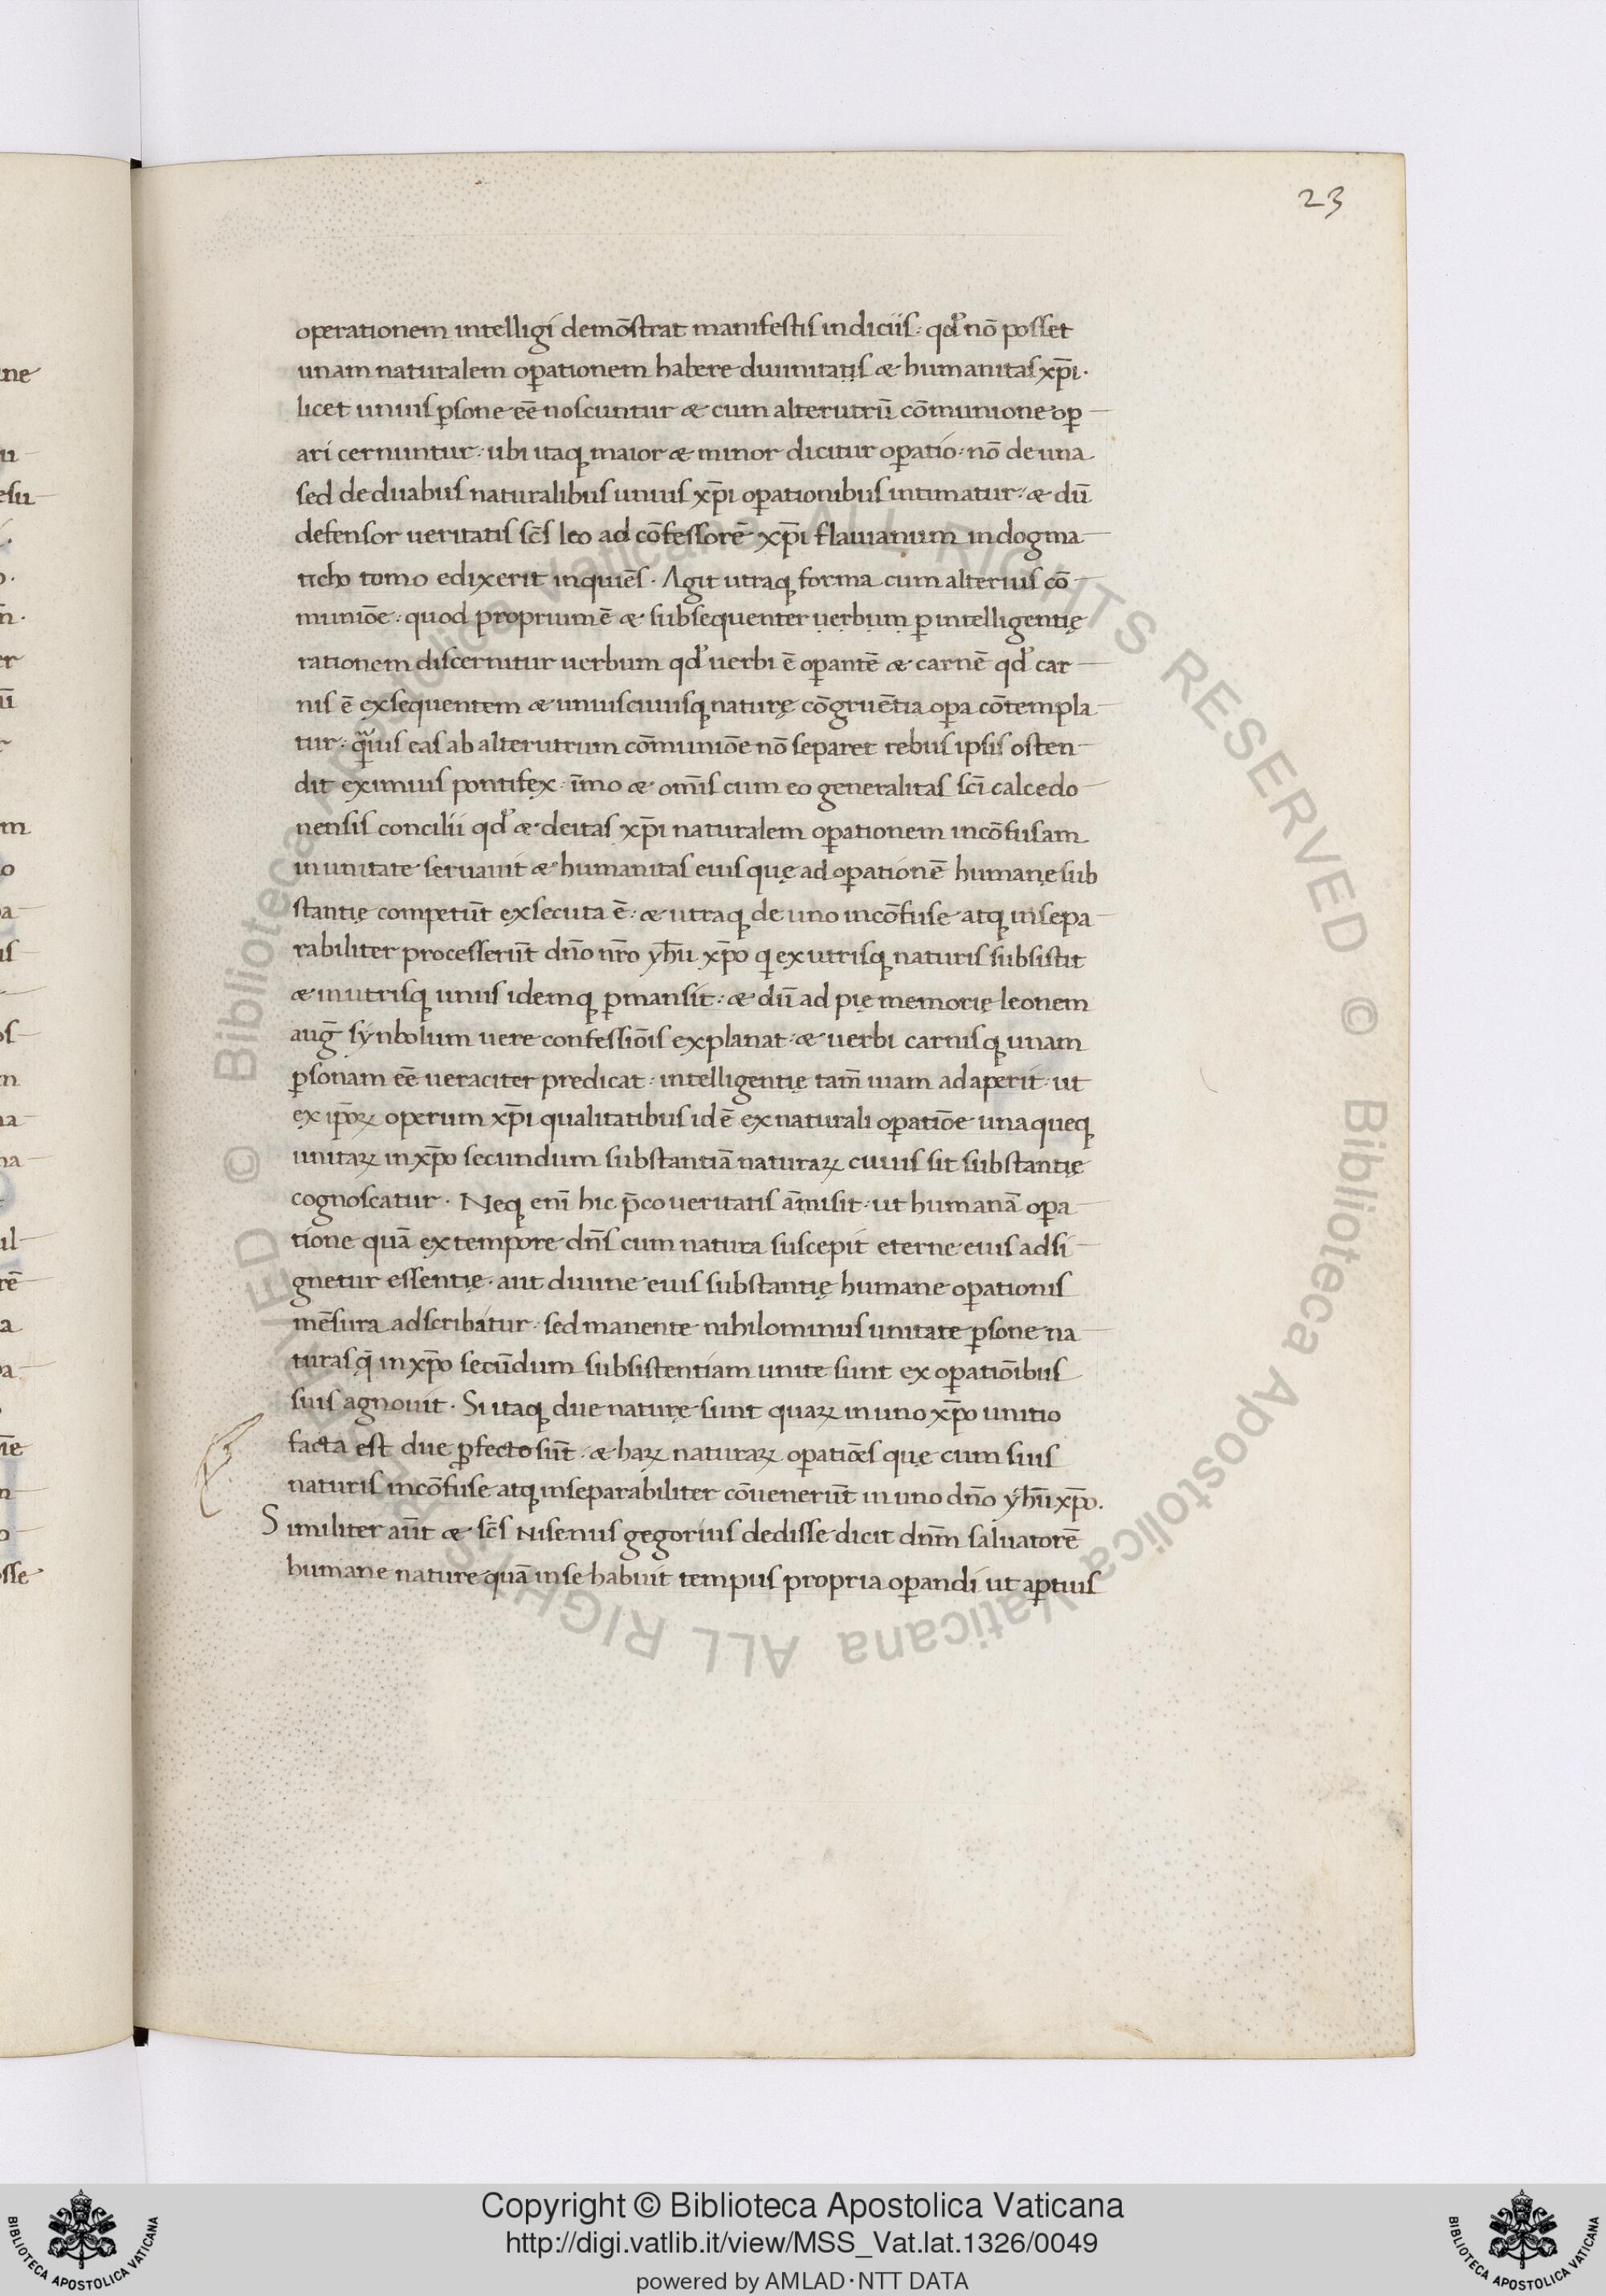 23
operationem intelligi demōstrat manifestis indiciis. qd' nō posset
unam naturalem oꝑationem habere diuinitatis & humanitas xp̄i.
licet unius ꝑsone eē noscuntur & cum alterutrū cōmunione oꝑ
ari cernuntur. ubi itaqꝫ maior & minor dicitur oꝑatio. nō de una
sed de duabus naturalibus unius xp̄i oꝑationibus intimatur. & dū
defensor ueritatis sc̄s leo ad cōfessorē xp̄i flauianum in dogma
ticho tomo edixerit inquiēs. Agit utraqꝫ forma cum alterius cō
muniōe. quod proprium ē & subsequenter uerbum ꝑ intelligentię
rationem discernitur uerbum qd' uerbi ē oꝑantē & carnē qd' car
nis ē exsequentem & uniuscuiusqꝫ naturę cōgruētia oꝑa cōtempla
tur. q̄̄uis eas ab alterutrum cōmuniōe nō separet rebus ipsis osten
dit eximius pontifex. īmo & om̄is cum eo generalitas sc̄i calcedo
nensis concilii qd' & deitas xp̄i naturalem oꝑationem incōfusam
in unitate seruauit & humanitas eius quę ad oꝑationē humanę sub
stantię competūt exsecuta ē. & utraqꝫ de uno incōfuse atqꝫ insepa
rabiliter processerūt dn̄o nr̄o yh̄u xp̄o qi ex utrisqꝫ naturis subsistit
& in utrisqꝫ unus idemqꝫ ꝑmansit. & dū ad pię memorię leonem
auḡ synbolum uere confessiōis explanat. & uerbi carnisqꝫ unam
ꝑsonam eē ueraciter predicat. intelligentię tam̄ uiam adaperit. ut
ex ip̄oꝝ operum xp̄i qualitatibus id ē ex naturali oꝑatiōe una queqꝫ
unitaꝝ in xp̄o secundum substantiā naturaꝝ cuius sit substantię
cognoscatur. Neqꝫ enī hic p̄co ueritatis āmisit. ut humanā oꝑa
tione quā ex tempore dn̄s cum natura suscepit eterne eius adsi
gnetur essentię. aut diuine eius substantię humane oꝑationis
mēsura adscribatur. sed manente nihilominus unitate ꝑsone na
turas q̄ in xp̄o secūdum subsistentiam unite sunt ex oꝑatiōibus
suis agnouit. Si itaqꝫ due naturę sunt quaꝝ in uno xp̄o unitio
facta est due ꝑfecto sūt. & haꝝ naturaꝝ oꝑatiōes quę cum suis
naturis incōfuse atqꝫ inseparabiliter cōuenerūt in uno dn̄o yh̄u xp̄o.
Similiter aūt & sc̄s Nisenus gegorius dedisse dicit dn̄m saluatorē
humane nature quā in se habuit tempus propria oꝑandi ut aꝑtius
Copyright © Biblioteca Apostolica Vaticana
http://digi.vatlib.it/view/MSS_Vat.lat.1326/0049
powered by AMLAD·NTT DATA